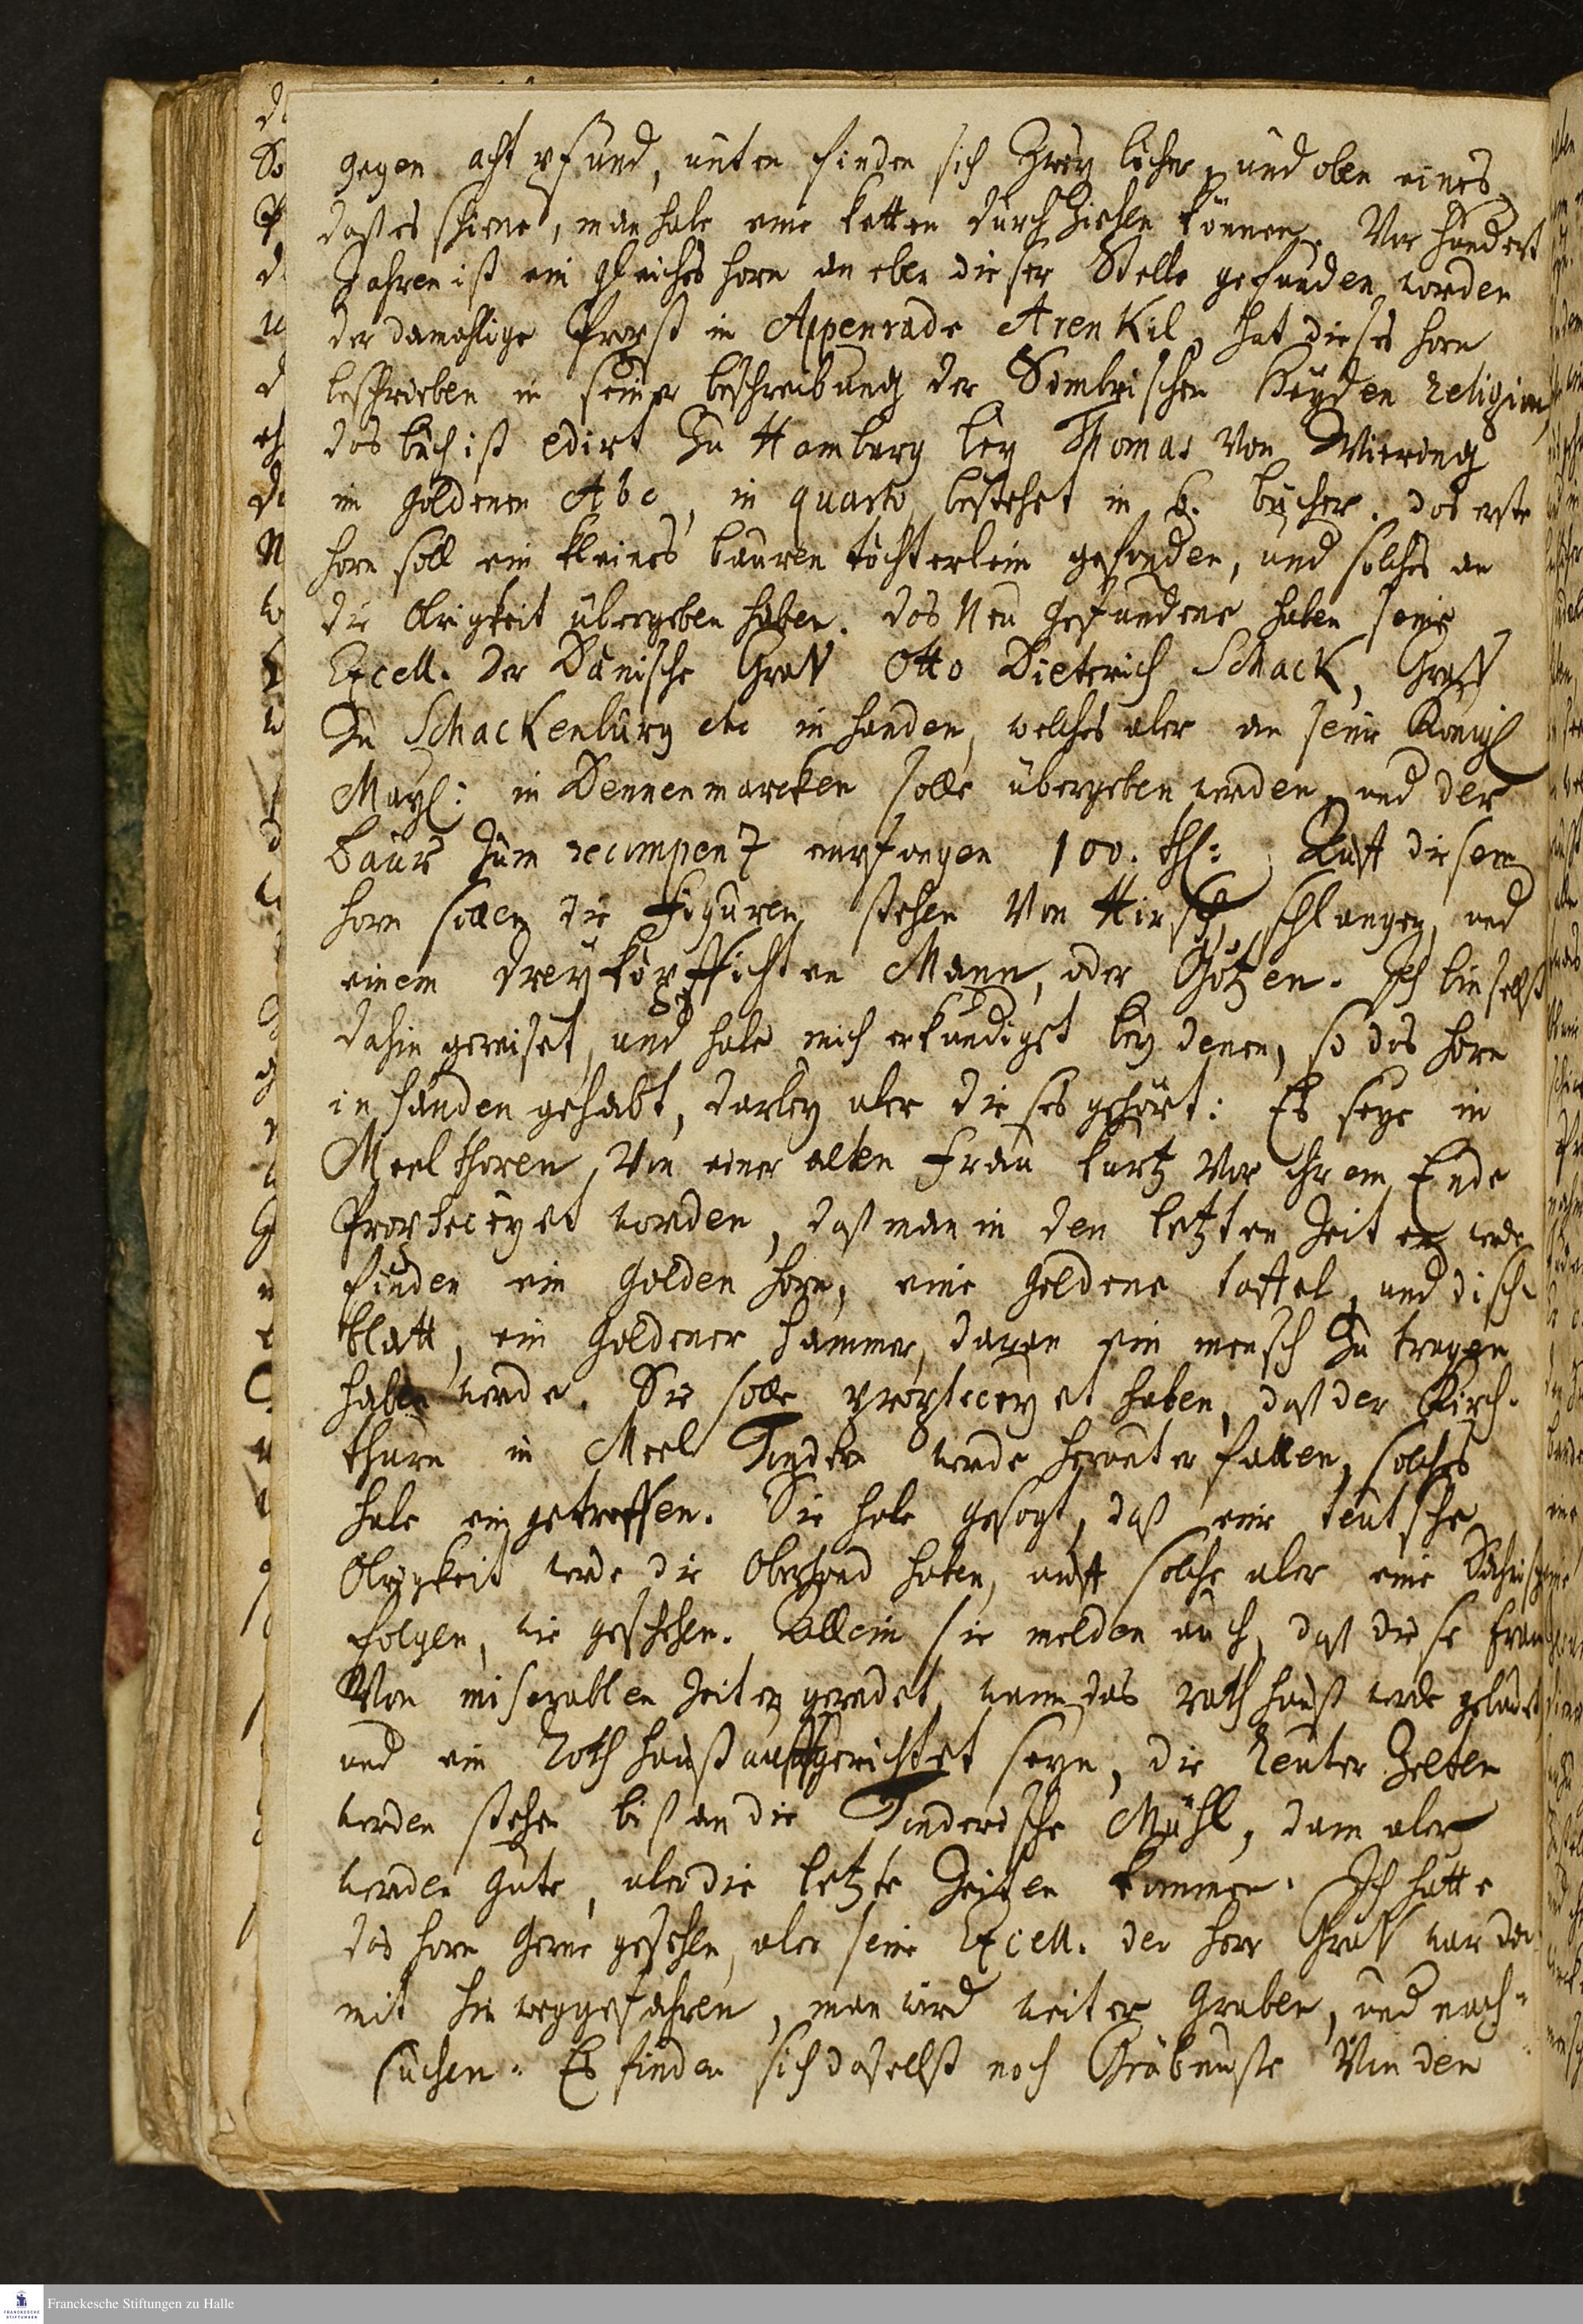 gegen acht pfund, unten finden sich zwey löcher, und oben eines,
daß es schiene, man habe eine ketten durch ziehen können. Vor hundert
Jahren ist ein gleiches horn an eben dieser Stelle gefunden worden
der damahlige Probst in Appenrade ArenKil, hat dieses horn
beschrieben in seiner beschreibung der Simbrischen Heyden religion,
das buch ist edirt zu Hamburg bey Thomas von Wiering
im goldenen Abc, in quarto bestehet in 6. bücher. das erste
horn soll ein kleines bauren töchterlein gefonden, und solches an
die Obrigkeit übergeben haben. das Neu gefundene haben seine
Excell. der Dänische Graff Otto Dieterich Schack, Graff
zu Schackenburg etc in handen, welches aber an seine Königl
Mayl: in Dennenmarcken solle übergeben werden, und der
baur zum recompenz empfangen 100. thl: Auff diesem
horn sollen die Figuren stehen von Hirsch, schlangen, und
einem dreyköpffichten Mann, oder Götzen. Ich bin selbst
dahin gereiset, und habe mich erkundiget bey denen, so das horn
in händen gehabt, darbey aber dieses gehört: Es seye in
Meelthoren, von einer alten Frau kurtz vor ihrem Ende
Propheceyet worden, daß man in den letzten Zeiten werde
finden ein golden horn, eine goldene taffel, und disch-
blatt, ein goldener hammer, daran ein mensch zu tragen
haben werde. Sie solle propheceyet haben, daß der Kirch-
thurn in Meel Tonder werde herunter fallen, solches
habe eingetroffen. Sie habe gesagt, daß eine teutsche
Obrigkeit werde die Oberhand haben, auff solche aber eine Dänische
folgen, wie geschehen. Allein sie melden auch, daß diese frau
Von miserablen Zeiten geredet, wann das rathhauß werde
und ein Rothhauß auffgerichtet seyn, die Reuter Zelten
werden stehen biß an die Tonderische Mühl, dann aber
werden gute, aber die letzte Zeiten kommen. Ich hätte
das horn gerne gesehen, aber seine Excell. der herr Graff war da
mit hinweggefahren, man wird weiter graben, und nach-
suchen. Es finden sich daselbst noch Gräbnusse von den
Franckesche Stiftungen zu Halle